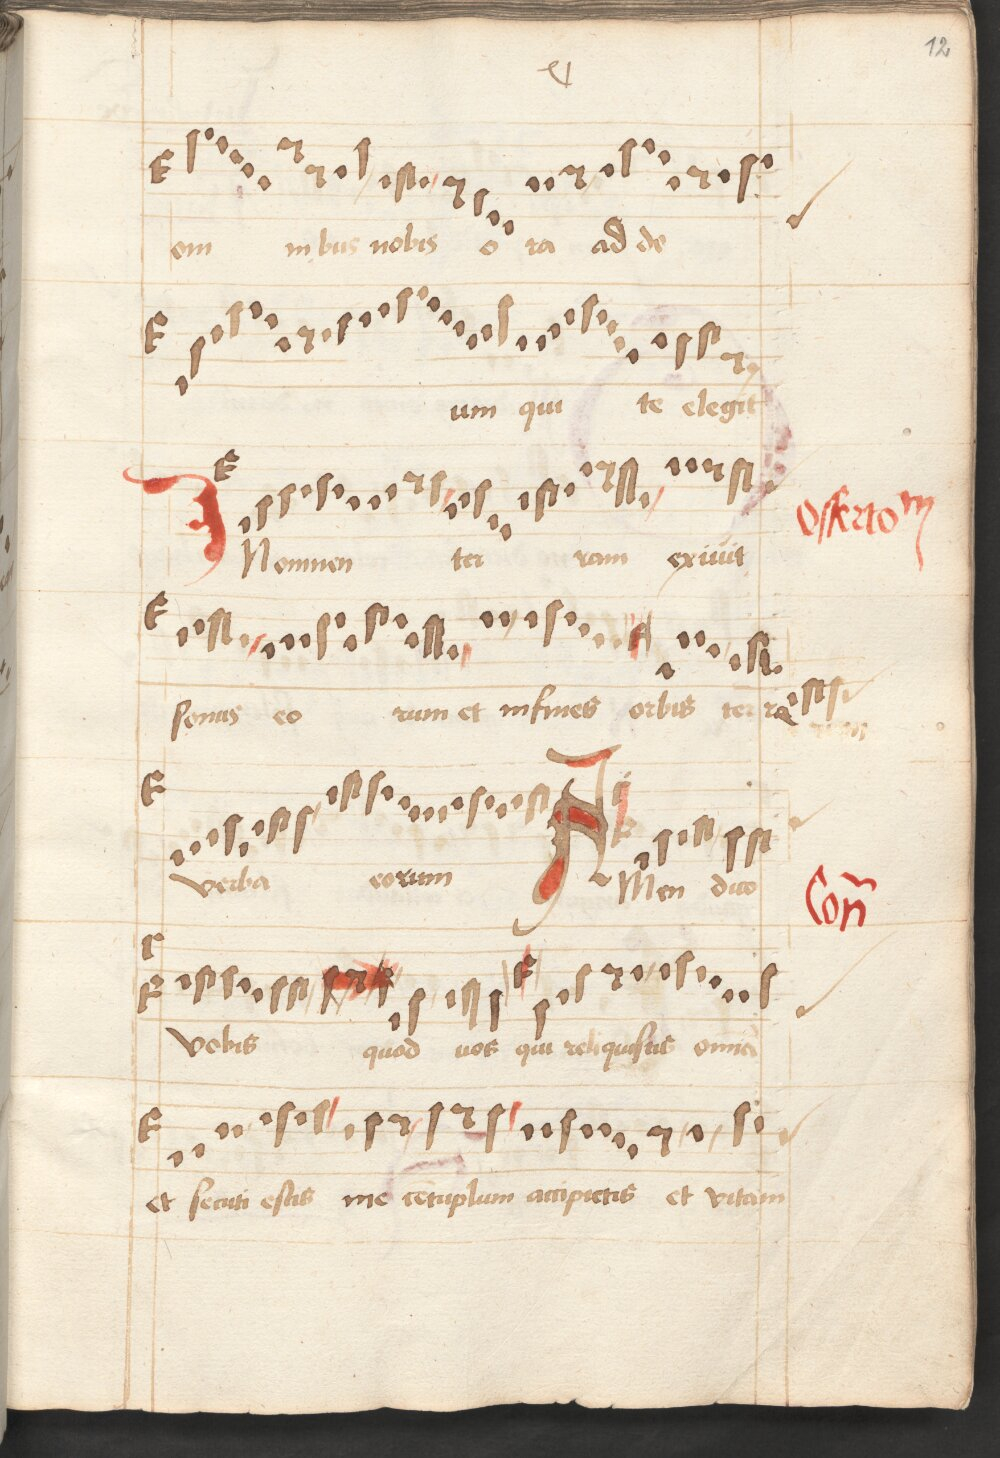 12
om nibus nobis o ra ad de
um qui te elegit
JN omnen ter ram exiuit
Offertom
sonus eo rum et infines orbis ter re
verba eorum AMen dico
Con
vobis quod uos qui reliquistis omnia
et secuti estis me cētuplum accipietis et vitam